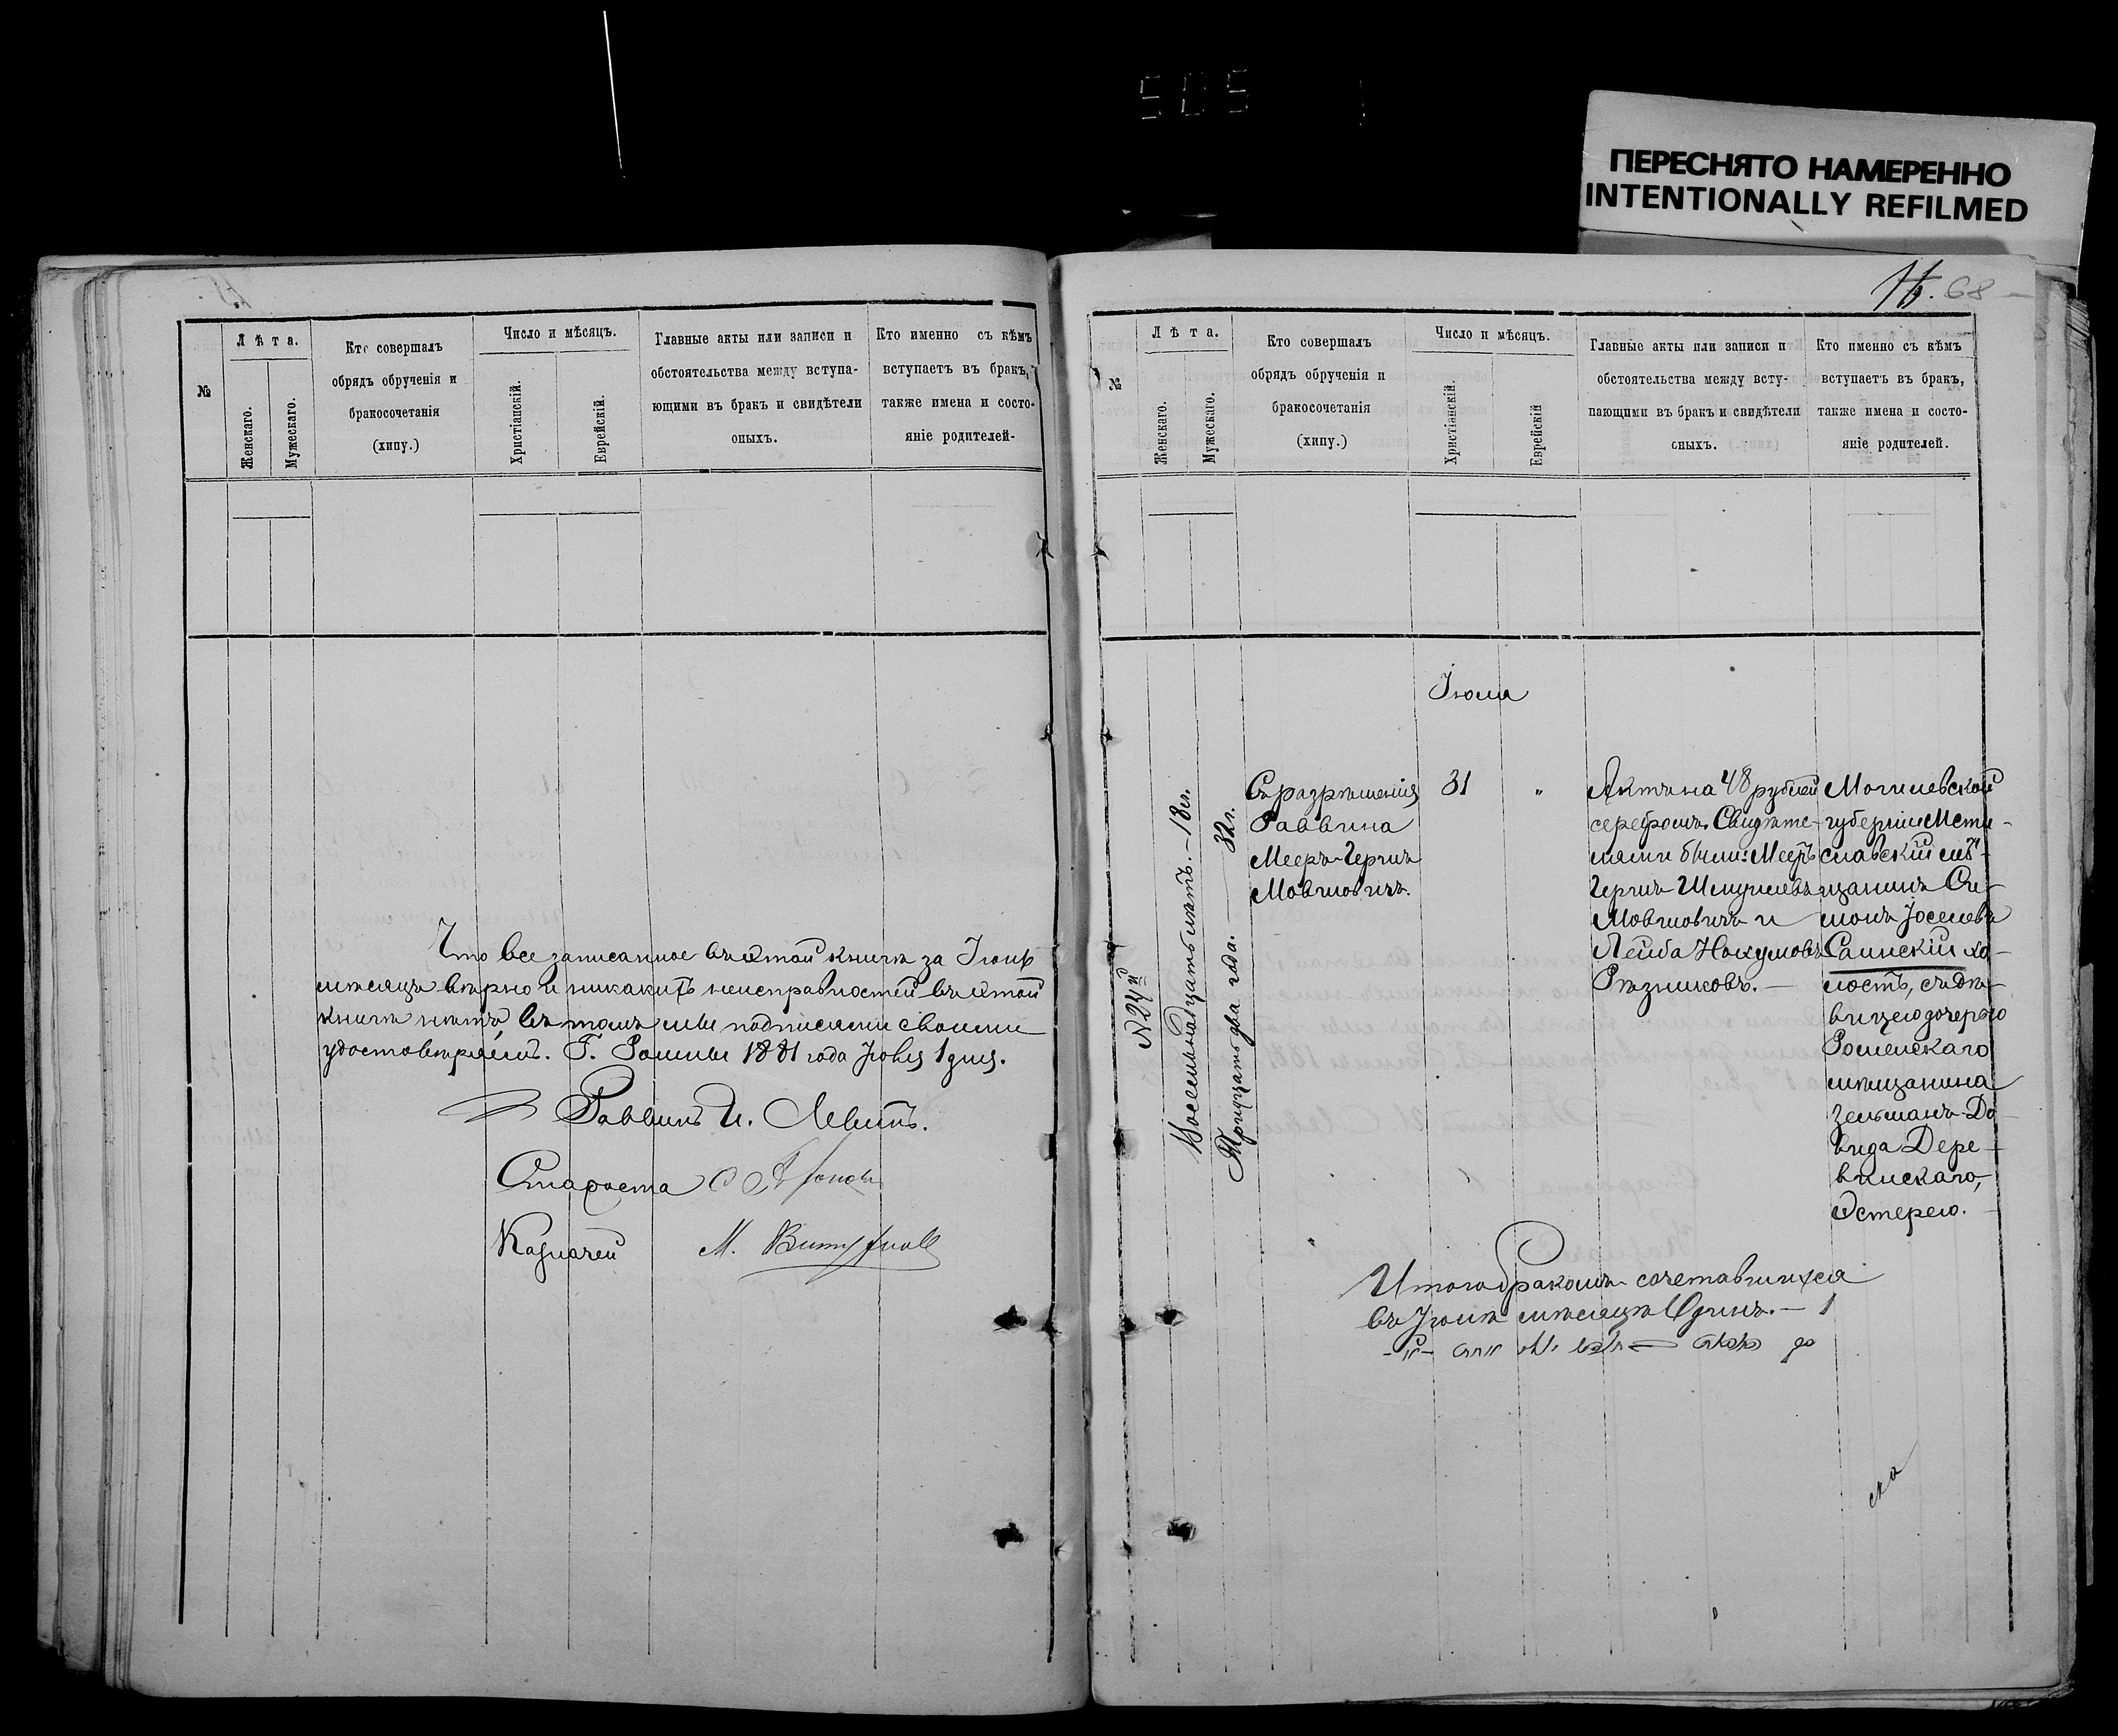 ПЕРЕСНЯТО НАМЕРЕННО
INTENTIONALLY REFILMED
505
68
№
Лѣта.
Женскаго.
Мужескаго.
Кто совершалъ
обрядъ обрученія и
бракосочетанія
(хипу.)
Число и мѣсяцъ.
Христіанскій.
Еврейскій.
Главные акты или записи и
обстоятельства между вступа-
ющими въ бракъ и свидѣтели
оныхъ.
Кто именно съ кѣмъ
вступаетъ въ бракъ,
также имена и состо-
яніе родителей-
Что все записанное въ этой книгѣ за Іюнь
мѣсяцъ вѣрно и никакихъ неисправностей въ этой
книгѣ нѣтъ въ томъ мы подписями своими
удостовѣряемъ. Г. Ромны 1881 года 1 дня.
Раввинъ И. Левитъ.
Староста
Казначей М.
№
Лѣта.
Женскаго.
Мужескаго.
Кто совершалъ
обрядъ обрученія и
бракосочетанія
(хипу.)
Число и мѣсяцъ.
Христіанскій.
Еврейскій
Главные акты или записи и
обстоятельства между всту-
пающими въ бракъ и свидѣтели
оныхъ.
Кто именно съ кѣмъ
вступаетъ въ бракъ,
также имена и состо-
яніе родителей.
Іюля
№ 24й
Восемьнадцать лѣтъ. — 18 л.
Тридцать два года. — 32 г.
Съ разрѣшенія
Раввина
Мееръ-Герчъ
Мовшовичъ.
31
"
Актъ на 48 рублей
серебромъ. Свидѣте-
лями были: Мееръ
Герчъ Шмуилевъ
Мовшовичъ и
Лейба Нохумовъ
Рѣзниковъ. —
Могилевской
губерніи Мсти-
славскій мѣ-
щанинъ Си-
монъ Іоселевъ
Саинскій хо-
лостъ, съ дѣ-
вицею дочерью
Роменскаго
мѣщанина
Зельманъ-Да-
вида Дере-
вянскаго,
Эстерею.
Итого бракомъ сочетавшихся
въ Іюлѣ мѣсяцѣ Одинъ. — 1